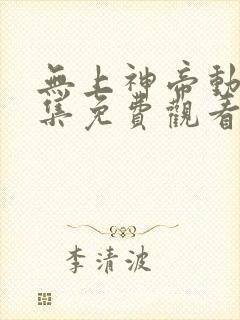 無上神帝動
集免費觀看
李清波